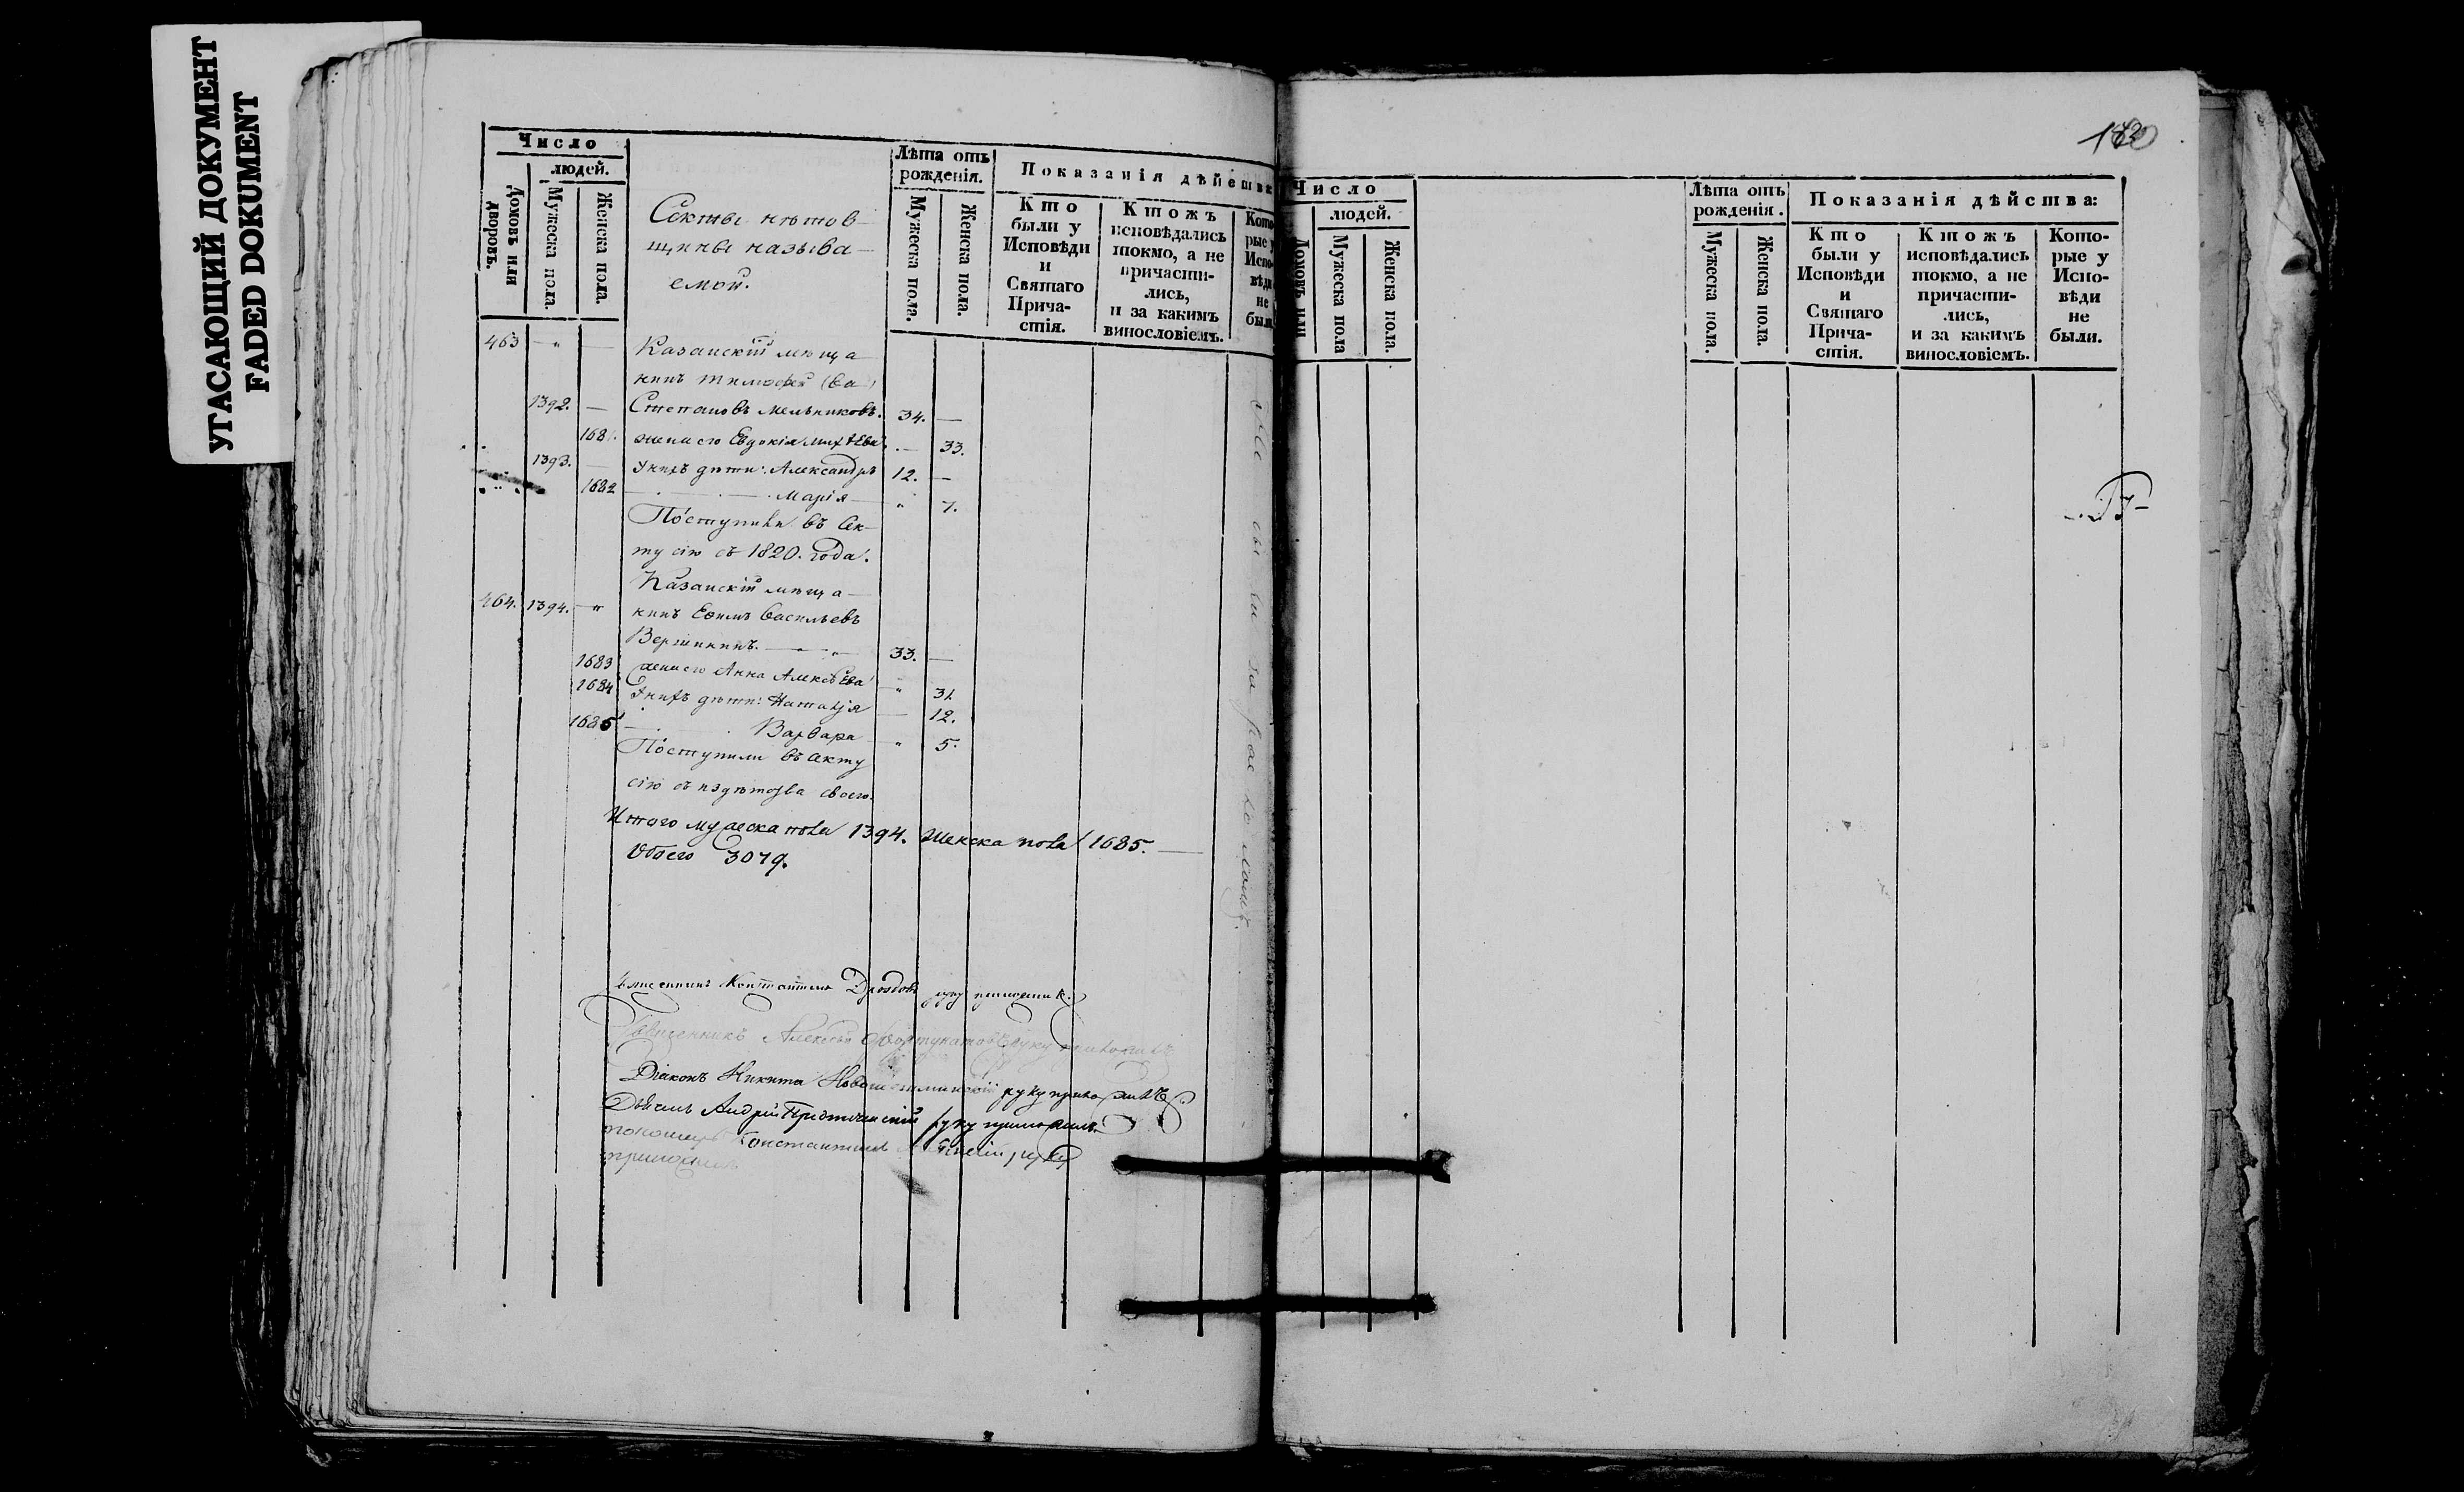 УГАСАЮЩИЙ ДОКУМЕНТ
FADED DOKUMENT
Число
людей.
Домовъ или дворовъ.
Мужеска пола.
Женска пола.
Секты нѣтов-
щины называ-
емой.
Лѣта отъ
рожденія.
Мужеска пола.
Женска пола.
Показанія дѣйства
Кто
были у
Исповѣди
и
Святаго
Прича-
стія.
Ктожъ
исповѣдались
токмо, а не
причасти-
лись,
и за какимъ
винословіемъ.
Кото-
рые у
Испо-
вѣди
не
были
463 — „ — Казанскій мѣща-
нинъ Тимофей
1392. — Степановъ Мельниковъ. 34. —
168 жена его Евдокія — 33.
1393. — У нихъ дѣти: Александръ 12. —
1682 Марія „ 7.
Поступили въ сек-
ту сію съ 1820. года.
Казанскій мѣща-
464. 1394. — „ нинъ Ефимъ Васильевъ
Вершининъ. 33. —
1683 жена его Анна Алексѣева „ 31.
1684 У нихъ дѣти: Наталья — 12.
1685 Варвара „ 5.
Поступили въ секту
сію съ издѣтства своего.
Итого мужеска пола 1394. Женска пола 1685.
Обоего 3079.
Константинъ Дроздовъ руку приложилъ.
Священникъ Алексѣй Фортунатовъ руку приложилъ
Діаконъ Никита руку приложилъ.
Дьячекъ Андрей руку приложилъ.
Пономарь Константинъ руку
приложилъ
Число
людей.
Домовъ или
Мужеска пола
Женска пола.
Лѣта отъ
рожденія.
Мужеска пола.
Женска пола.
Показанія дѣйства:
Кто
были у
Исповѣди
и
Святаго
Прича-
стія.
Ктожъ
исповѣдались
токмо, а не
причасти-
лись,
и за какимъ
винословіемъ.
Кото-
рые у
Испо-
вѣди
не
были.